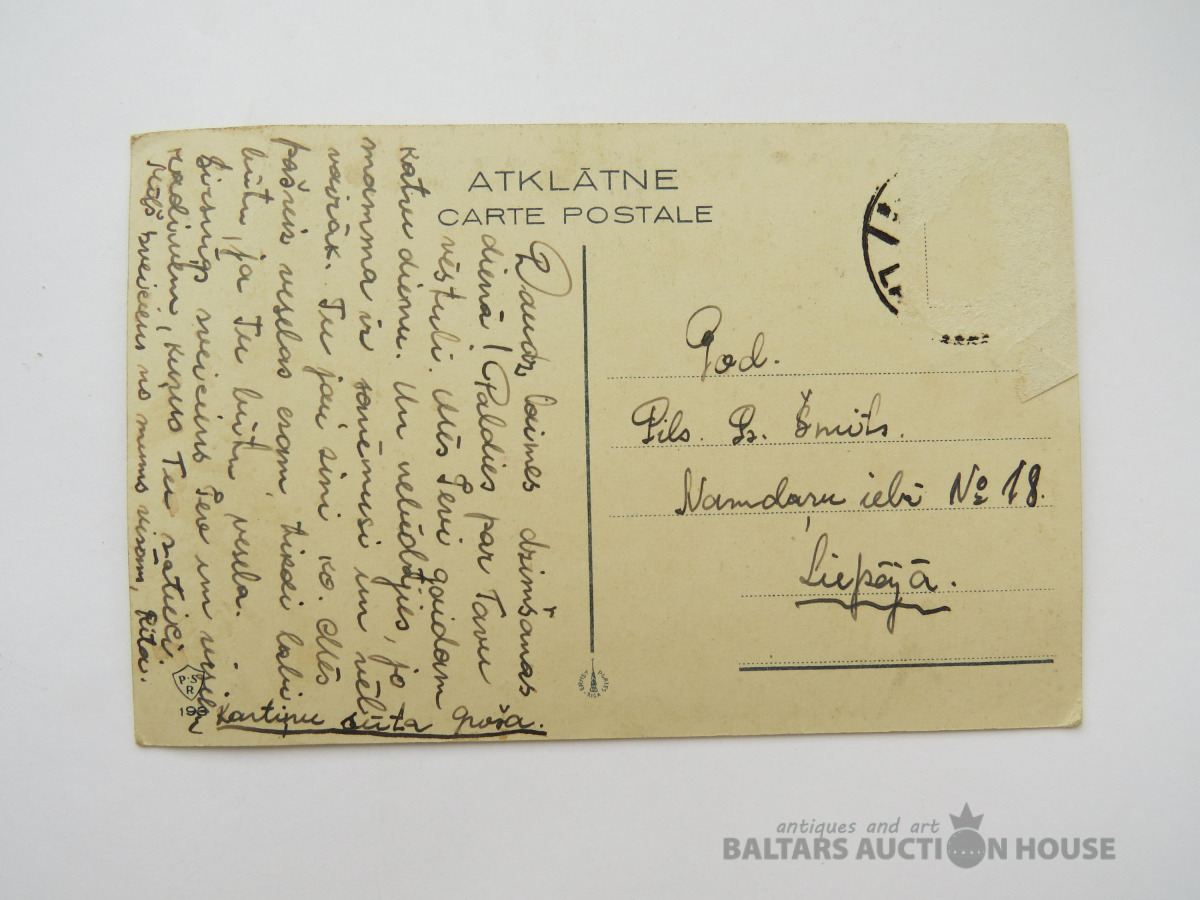 ATKLĀTNE
CARTE POSTALE
Daudz laimes dzimšanas
dienā! Paldies par Tavu
vēstuli. Mēs Tevi gaidam
katru dienu. Un nelūdzjies, jo
mamma ir saņēmusi un vēl
vairāk. Tu jau zini ko. Mēs
pašreiz veselas esam, tikai labi
būtu, ja Tu būtu vesela.
Sirsnīgs sveiciens Tev un visiem
radiņiem, kuŗus Tu satiec.
Mīļš sveiciens no mums visām, Rita.
Kartiņu sūta Groša.
God.
Pils. Šmits.
Namdaŗu ielā No 18.
Liepājā.
P.S.R
199
antiques and art
BALTARS AUCTION HOUSE